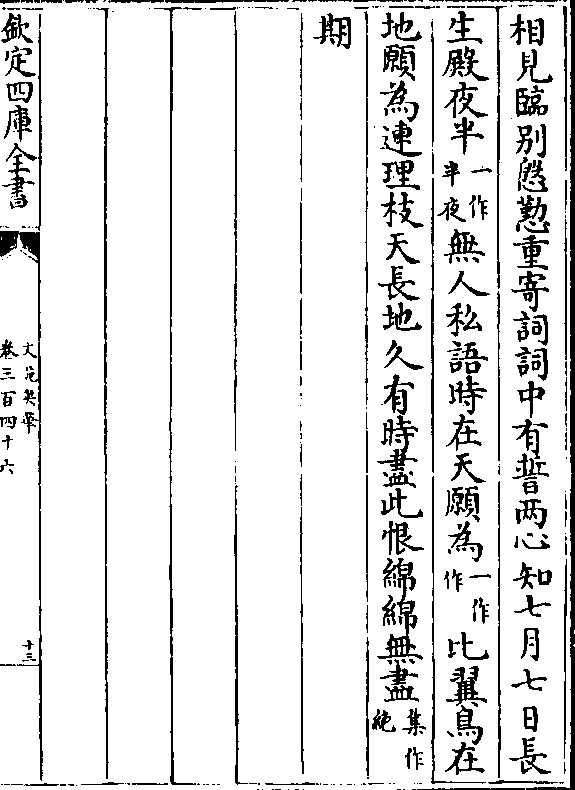 相見臨别慇懃重寄詞詞中有誓两心知七月七日長
生殿夜半一作半夜無人私語時在天願為一作作比翼鳥在
地願為連理枝天長地久有時盡此恨綿綿無盡集作絶
期
欽定四庫全書
文苑英華
卷三百四十六
十三